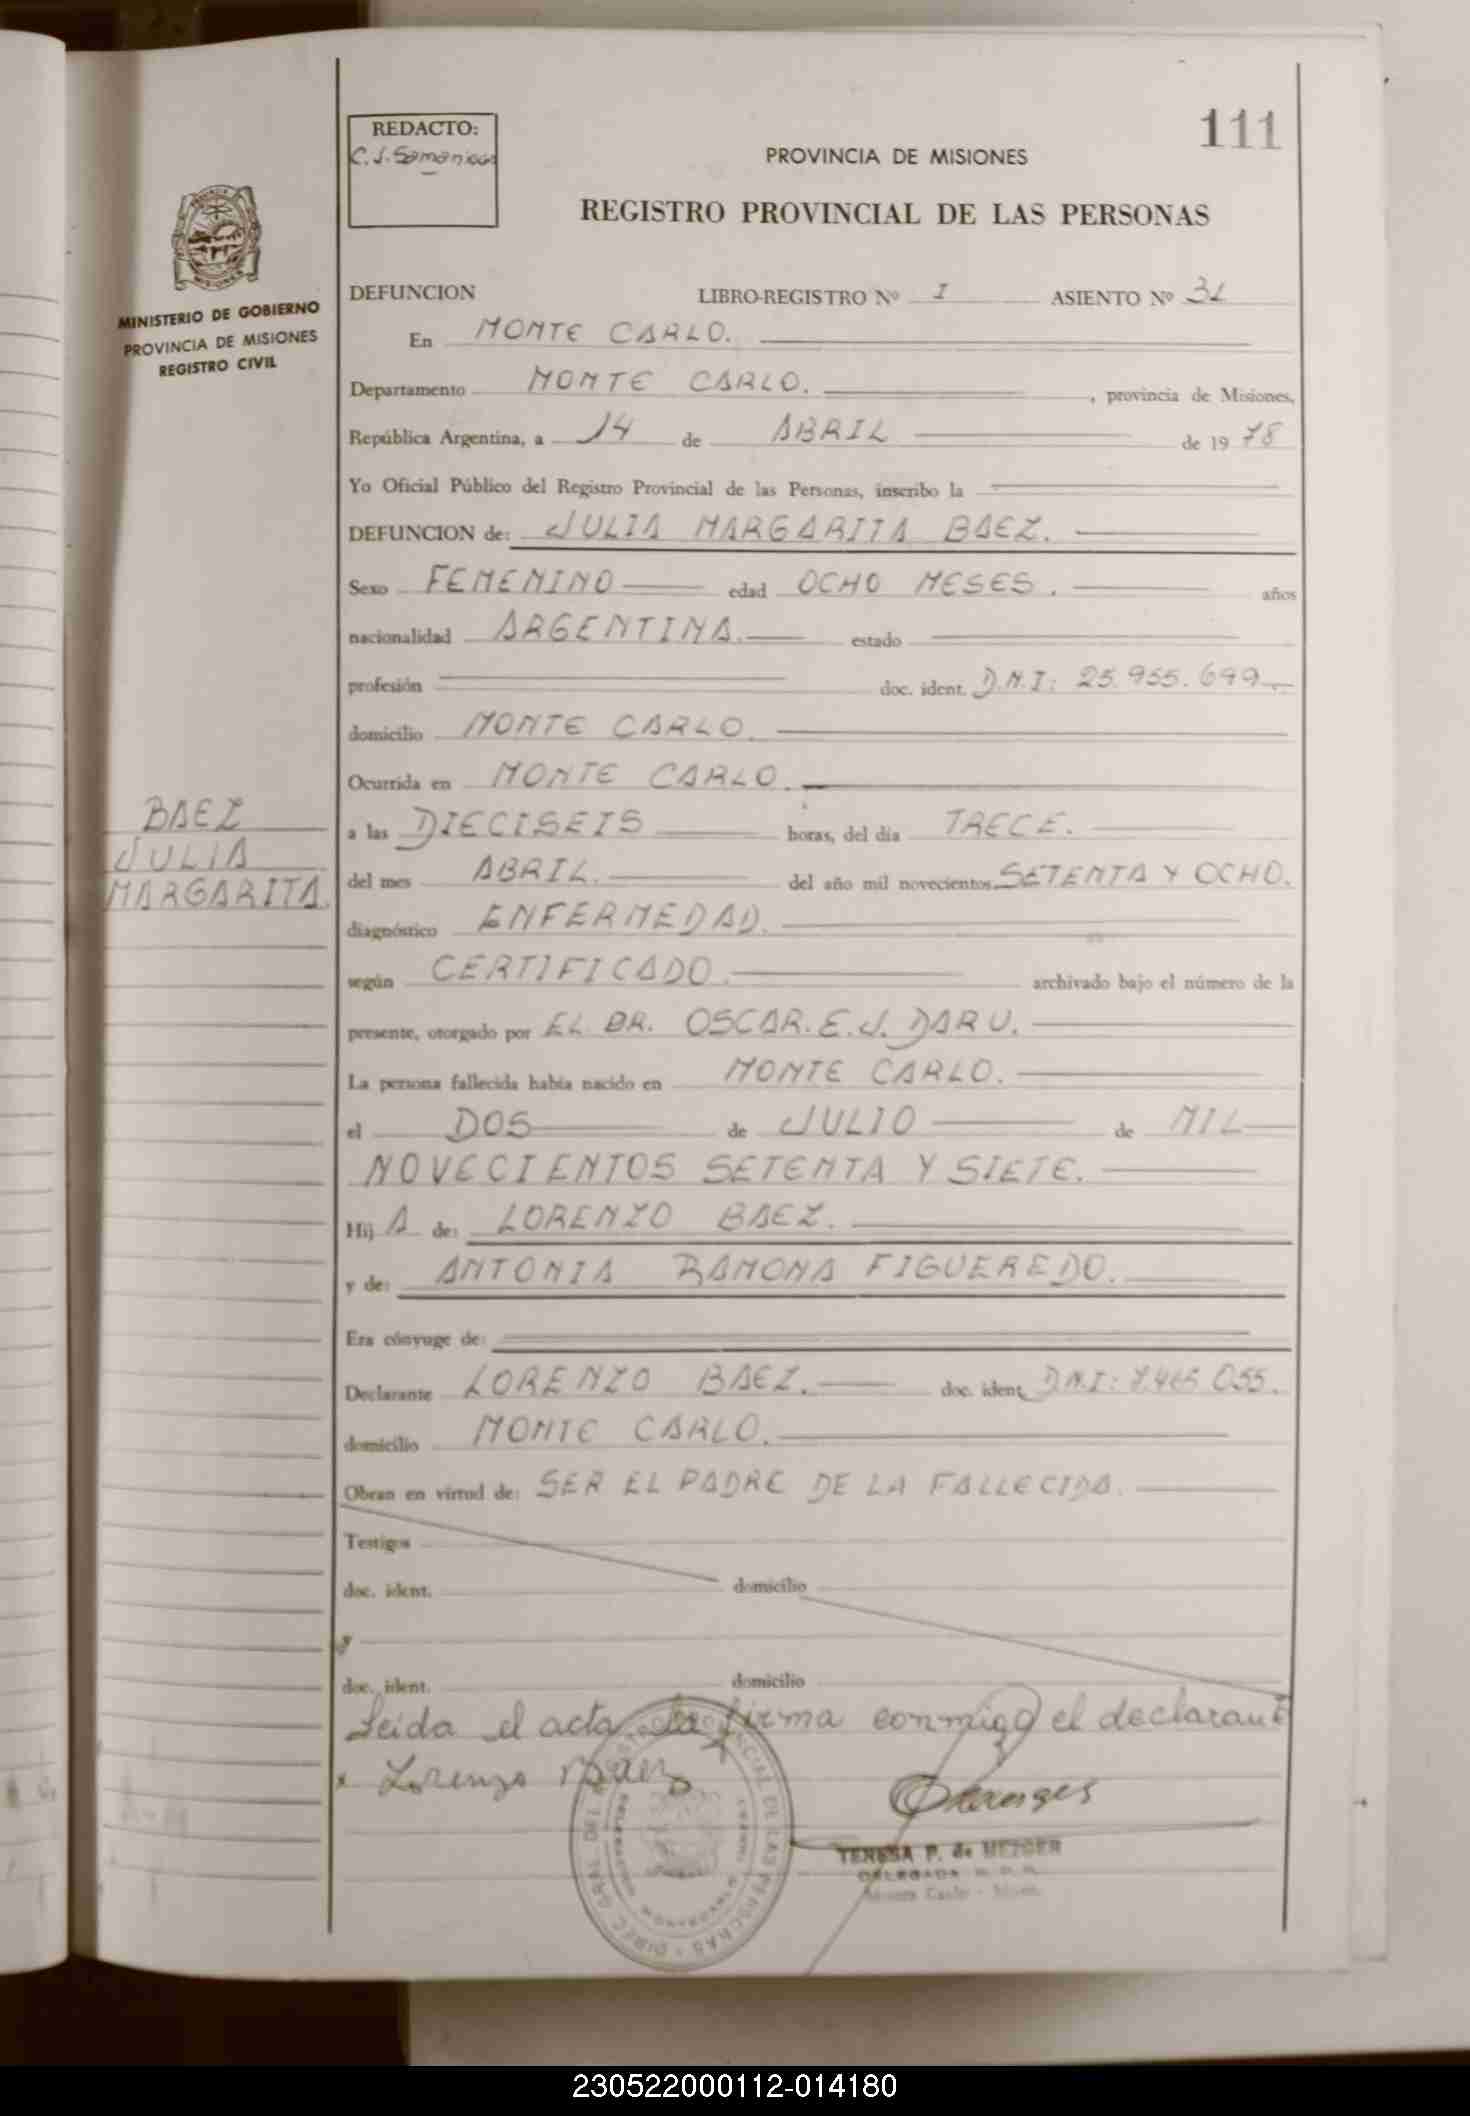 111
REDACTO:
PROVINCIA DE MISIONES
REGISTRO PROVINCIAL DE LAS PERSONAS
MINISTERIO DE GOBIERNO
PROVINCIA DE MISIONES
REGISTRO CIVIL
DEFUNCION LIBRO-REGISTRO Nº I ASIENTO Nº
En MONTE CARLO.
Departamento MONTE CARLO. , provincia de Misiones,
República Argentina, a 14 de ABRIL de 1978
Yo Oficial Público del Registro Provincial de las Personas, inscribo la
DEFUNCION de: JULIA MARGARITA BAEZ.
Sexo FEMENINO edad OCHO MESES. años
nacionalidad ARGENTINA. estado
profesión doc. ident. D.N.I: 25.955.699
domicilio MONTE CARLO.
Ocurrida en MONTE CARLO.
BAEZ
JULIA
MARGARITA.
a las DIECISEIS horas, del día TRECE.
del mes ABRIL. del año mil novecientos SETENTA Y OCHO.
diagnóstico ENFERMEDAD.
según CERTIFICADO. archivado bajo el número de la
presente, otorgado por EL DR. OSCAR.E.J. DARU.
La persona fallecida había nacido en MONTE CARLO.
el DOS de JULIO de MIL
NOVECIENTOS SETENTA Y SIETE.
Hij A de: LORENZO BAEZ.
y de: ANTONIA RAMONA FIGUEREDO.
Era cónyuge de:
Declarante LORENZO BAEZ. doc. ident. D.N.I: 7.465.055.
domicilio MONTE CARLO.
Obran en virtud de: SER EL PADRE DE LA FALLECIDA.
Testigos
doc. ident. domicilio
y
doc. ident. domicilio
Leida el acta la firma conmigo el declarante
x Lorenzo Baez
TERESA P. de MEZGER
DELEGADA R. P. P.
230522000112-014180